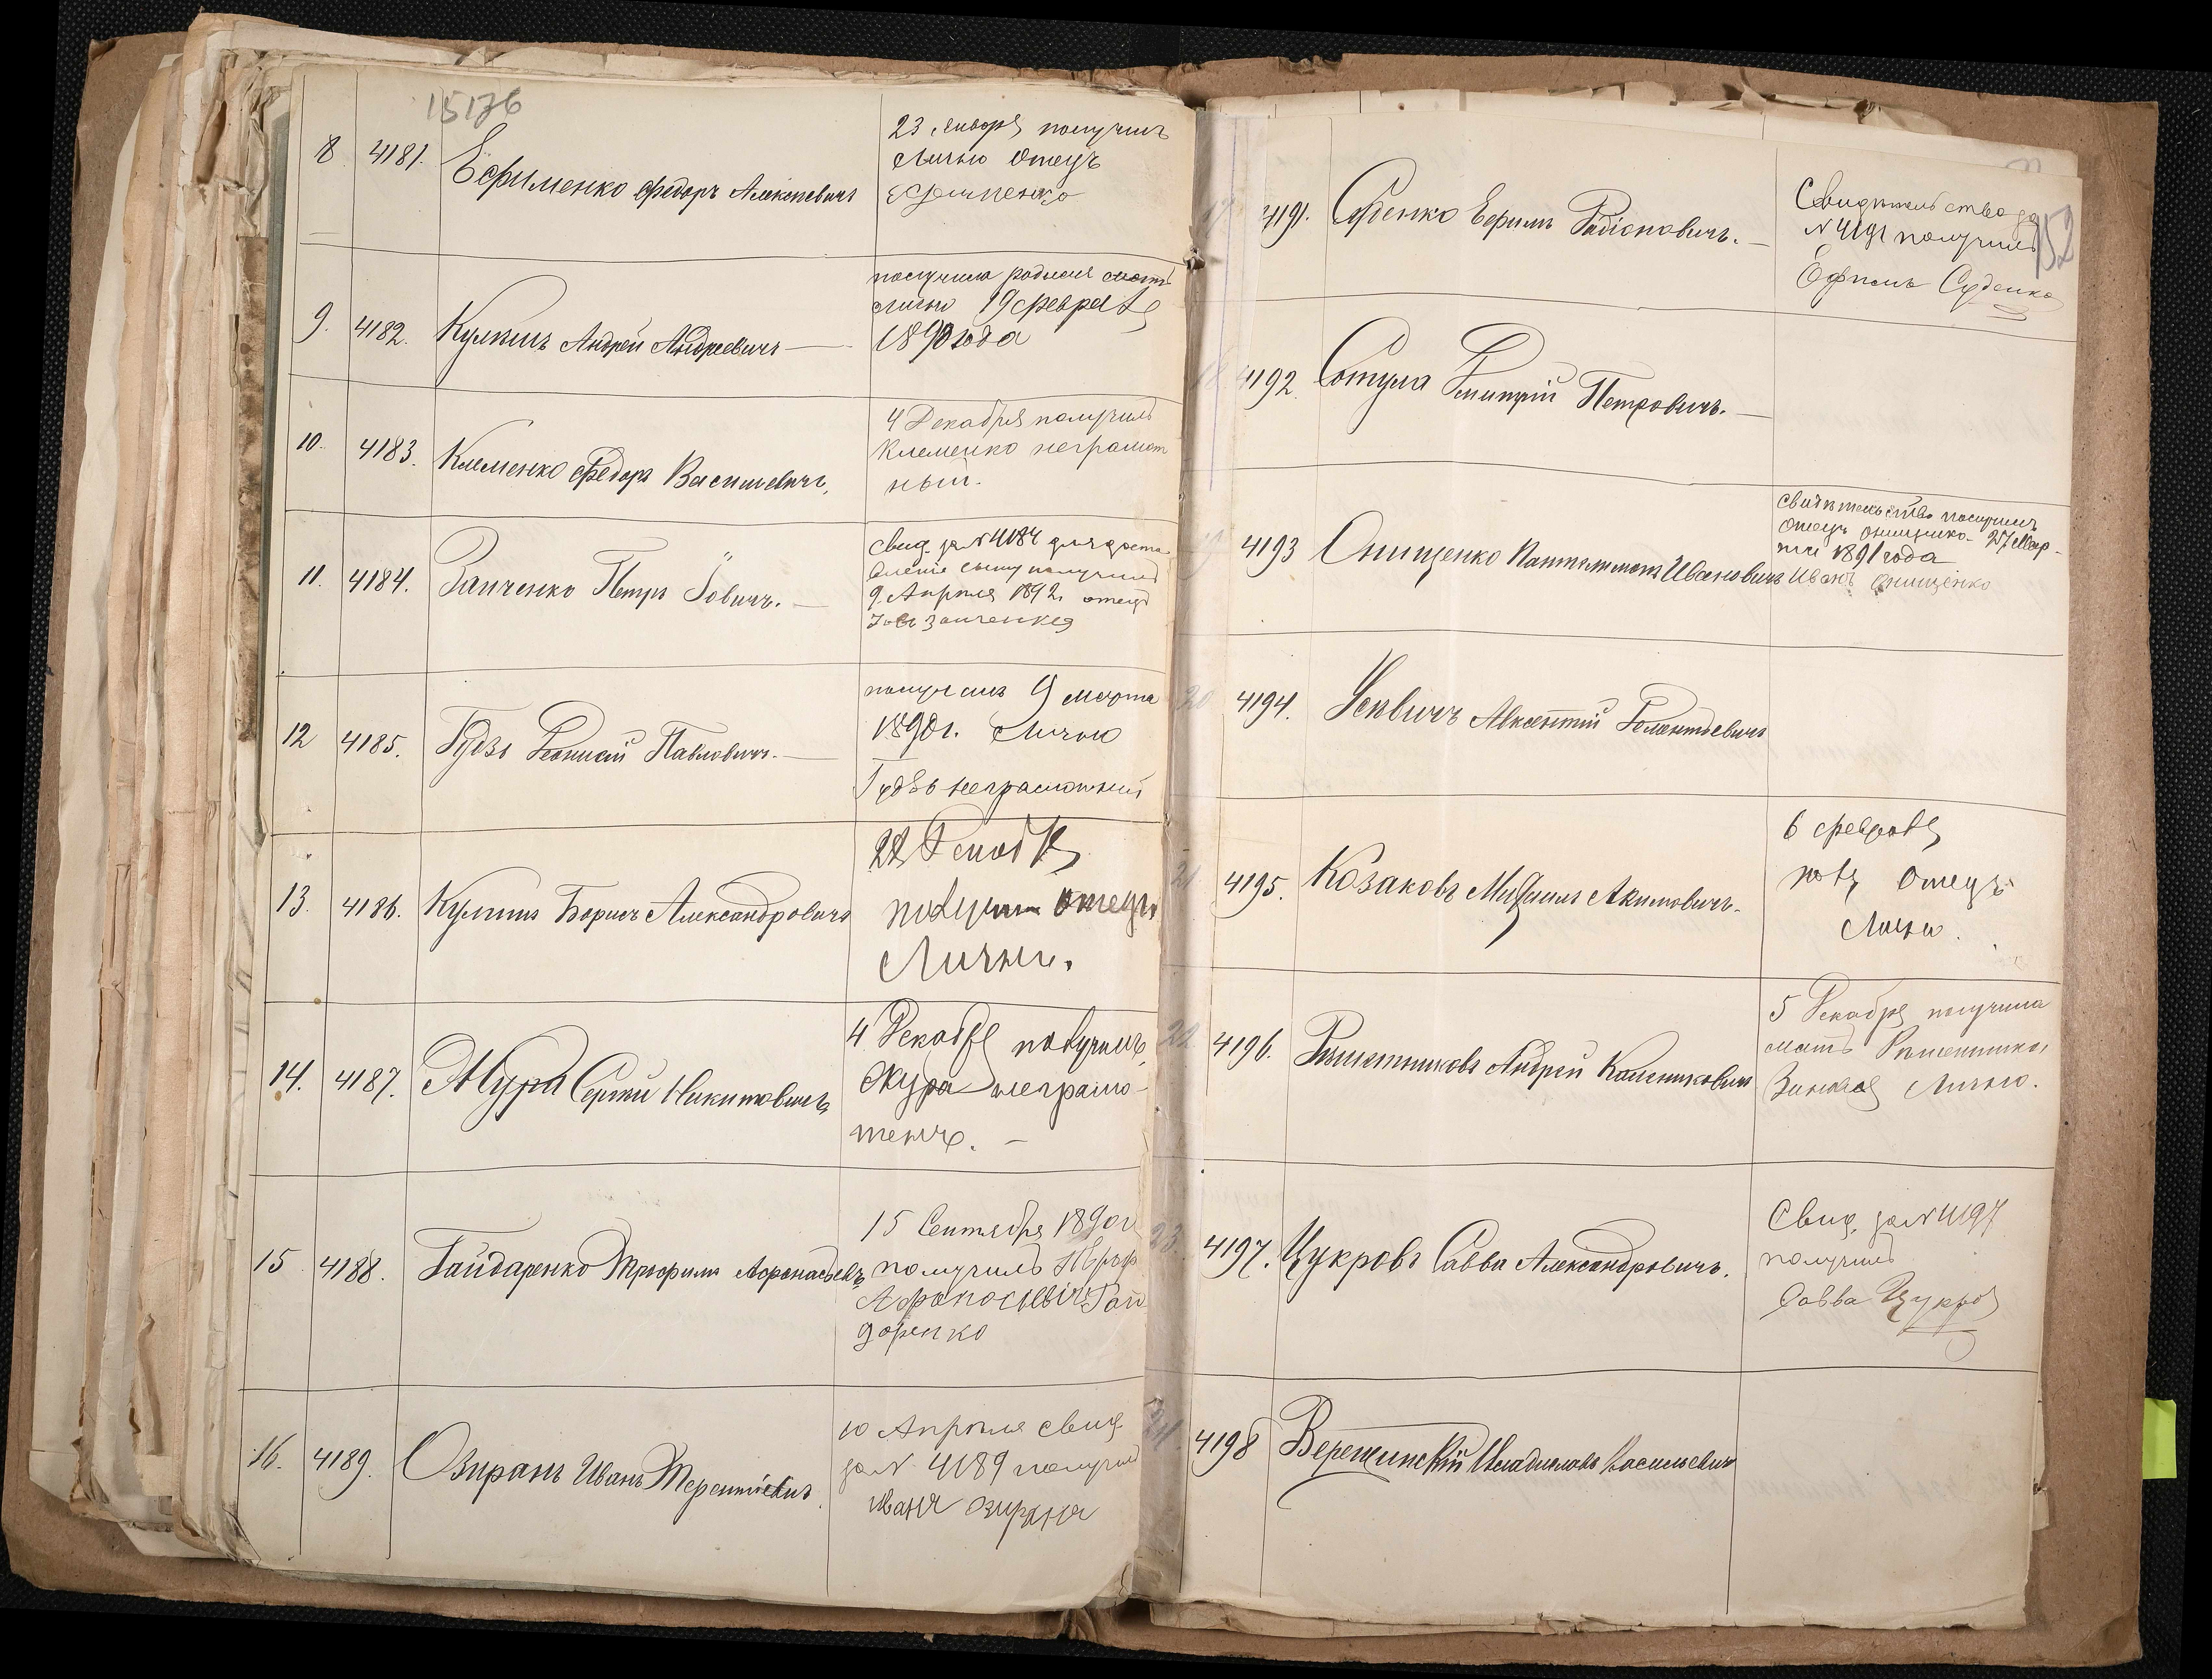 15176
8 4181. Ефименко Федоръ Алексѣевичъ
23 Января получилъ
Лично Отецъ
Ефименко
9. 4182. Кулишъ Андрей Андреевичъ —
получила родная мать
лично 19 февраля
1890 года
10. 4183. Клименко Федоръ Васильевичъ.
4 Декабря получилъ
Клеменко неграмот
ный.
11. 4184. Заиченко Петръ Іовичъ. —
Свид. за № 4184 для доста
вленія сыну получилъ
9. Апрѣля 1892. отецъ
Іовъ Заиченко
12 4185. Гудзь Діонисій Павловичъ. —
получилъ 9 марта
1890 г. Лично
Гудзь неграмотный
13. 4186. Кулишъ Борисъ Александровичъ
Декабря
получилъ отецъ
Лично.
14. 4187. Жура Сергѣй Никитовичъ
4 Декабря получилъ
Жура неграмо
тенъ. —
15 4188. Гайдаренко Трофимъ Афанасьевъ
15 Сентября 1890 г.
получилъ
Афанасьевичъ Гай
даренко
16. 4189. Озиранъ Иванъ Терентіевичъ.
10 Апрѣля свид
за № 4189 получилъ
Иванъ Озиранъ
152
17 4191. Суденко Ефимъ Родіоновичъ. —
Свидѣтельство за
№ 4191 получилъ
Ефимъ Суденко
18 4192. Сотула Дмитрій Петровичъ. —
19 4193 Онищенко Пантелимонъ Ивановичъ
Свидѣтельство получилъ
Отецъ Онищенко 27 Мар-
та 1891 года
Иванъ Онищенко
20 4194. Авксентій
21. 4195. Козаковъ Михаилъ Акимовичъ.
6 февраля
пол. Отецъ
Лично.
22 4196. Рѣшетниковъ Андрей Калениковичъ
5 Декабря получила
мать Рѣшетникова
Лично.
23. 4197. Цукровъ Савва Александровичъ.
Свид. за № 4197
получилъ
Савва Цукровъ
24. 4198 Верещинскій Владиславъ Васильевичъ